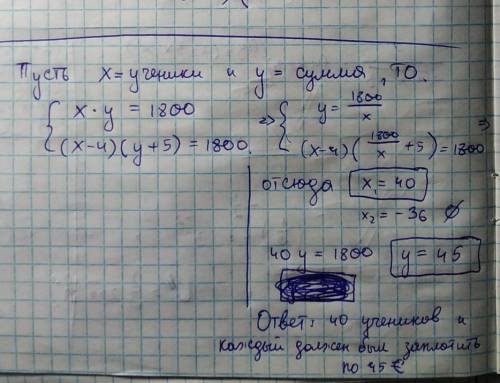 Пусть x = ученики и y = сумма, то.
{ x · y = 1800 => { y = 1800/x =>
{ (x-4)(y+5) = 1800. (x-4)(1800/x + 5) = 1800
отсюда x₁ = 40
x₂ = -36 ∅
40 y = 1800 y = 45
Ответ: 40 учеников и
каждый должен был заплотить
по 45 €